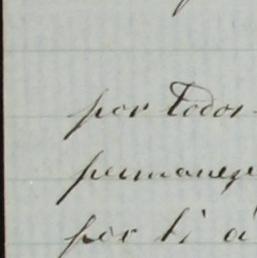 por todos
permanez
por ti á